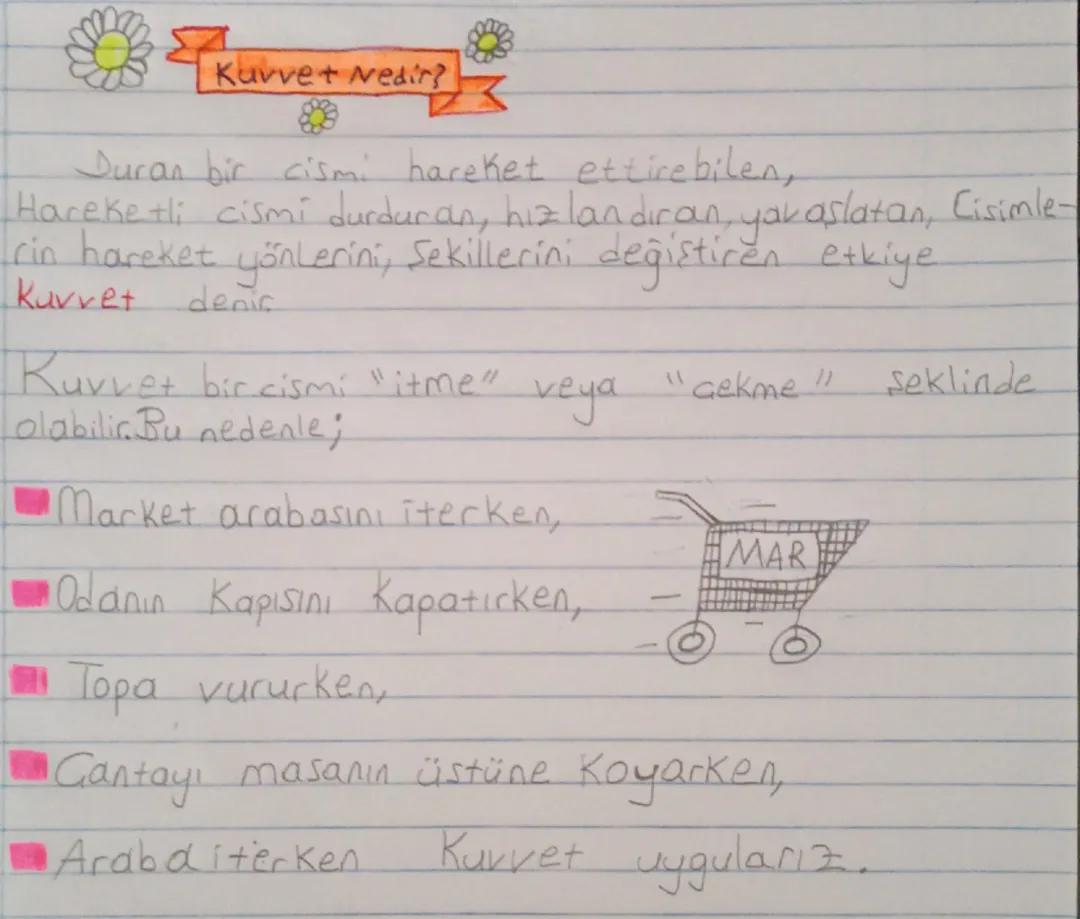 Kuvvet Nedir?
Duran bir cismi hareket ettirebilen,
Hareketli cismi durduran, hızlandıran, yavaşlatan, Cisimle-
rin hareket yönlerini, Sekillerini değiştiren etkiye
Kuvvet denir.
Kuvvet bir cismi "itme" veya "Cekme" seklinde
olabilir. Bu nedenle;
Market arabasını iterken,
MAR
Odanın Kapısını Kapatırken,
Topa vururken,
Cantayı masanın üstüne Koyarken,
Araba iterken Kuvvet uygularız.